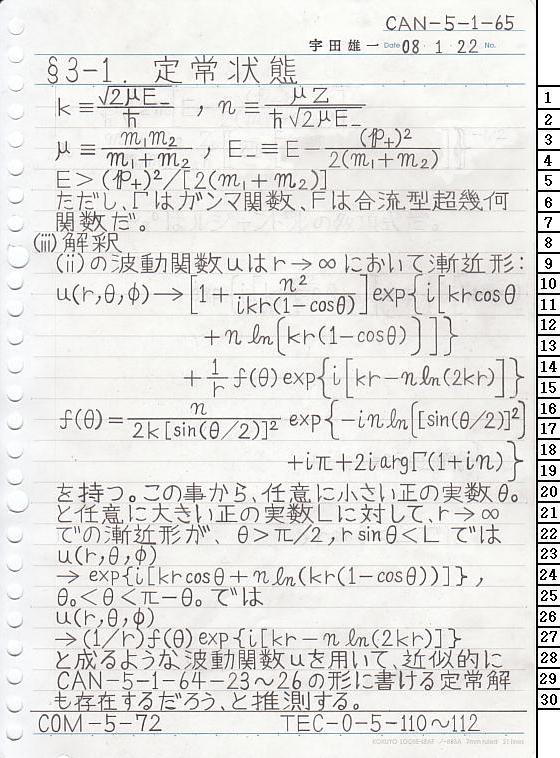 CAN-5-1-65
宇田雄一 Date 08・1・22 No.
§3-1. 定常状態
k≡√2μE₋/ħ , n≡μZ/ħ√2μE₋
μ≡m₁m₂/(m₁+m₂) , E₋≡E-(ℙ₊)²/2(m₁+m₂)
E>(ℙ₊)²/[2(m₁+m₂)]
ただし、Γはガンマ関数、Fは合流型超幾何
関数だ。
(iii)解釈
(ii)の波動関数uはr→∞において漸近形:
u(r,θ,φ)→[1+n²/ikr(1-cosθ)]exp{i[krcosθ
+n ln(kr(1-cosθ))]}
+1/r f(θ)exp{i[kr-n ln(2kr)]}
f(θ)=n/2k[sin(θ/2)]² exp{-in ln([sin(θ/2)]²)
+iπ+2i arg Γ(1+in)}
を持つ。この事から、任意に小さい正の実数θ₀
と任意に大きい正の実数Lに対して、r→∞
での漸近形が、θ>π/2, r sinθ<L では
u(r,θ,φ)
→ exp{i[krcosθ+n ln(kr(1-cosθ))]} ,
θ₀<θ<π-θ₀ では
u(r,θ,φ)
→(1/r)f(θ)exp{i[kr-n ln(2kr)]}
と成るような波動関数uを用いて、近似的に
CAN-5-1-64-23〜26の形に書ける定常解
も存在するだろう、と推測する。
COM-5-72 TEC-0-5-110〜112
1
2
3
4
5
6
7
8
9
10
11
12
13
14
15
16
17
18
19
20
21
22
23
24
25
26
27
28
29
30